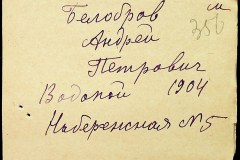 Белобров
Андрей
Петрович
Водопой 1904
Набережная №5